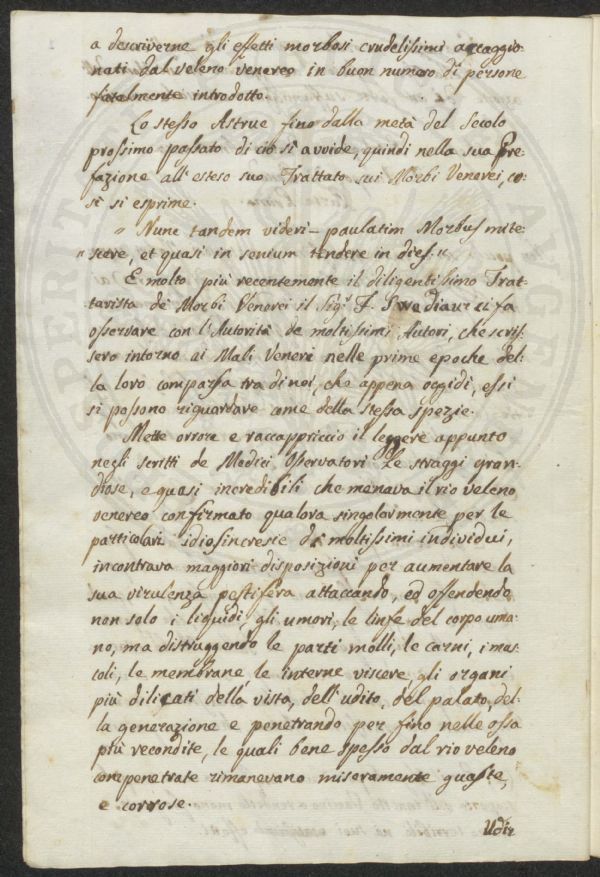 a descriverne gli effetti morbosi crudelissimi accaggio-
nati dal veleno venereo in buon numero di persone
fatalmente introdotto.
Lo stesso Astruc fino dalla metà del secolo
prossimo passato di ciò si avvide, quindi nella sua Pre-
fazione all'esteso suo Trattato sui Morbi Venerei, co-
sì si esprime.
" Nunc tandem videri paulatim Morbus mite-
" scere, et quasi in senium tendere in dies. "
E molto più recentemente il diligentissimo Trat-
tavista de' Morbi Venerei il Sigr F. Swediaur ci fa
osservare con l'Autorità de moltissimi Autori, che scris-
sero intorno ai Mali Venerei nelle prime epoche del-
la loro comparsa tra di noi, che appena oggidì, essi
si possono riguardare come della stessa spezie.
Mette orrore e raccappriccio il leggere appunto
negli scritti de Medici Osservatori Le straggi gran-
diose, e quasi incredibili che menava il rio veleno
venereo confirmato qualora singolarmente per le
particolari idiosincresie di moltissimi individui,
incontrava maggiori disposizioni per aumentare la
sua virulenza pestifera attaccando, ed offendendo
non solo i liquidi, gli umori, le linfe del corpo uma-
no, ma distruggendo le parti molli, le carni, i mus-
coli, le membrane, le interne viscere, gli organi
più dilicati della vista, dell'udito, del palato, del-
la generazione e penetrando per fino nelle ossa
più recondite, le quali bene spesso dal rio veleno
compenetrate rimanevano miseramente guaste,
e corrose.
Udir